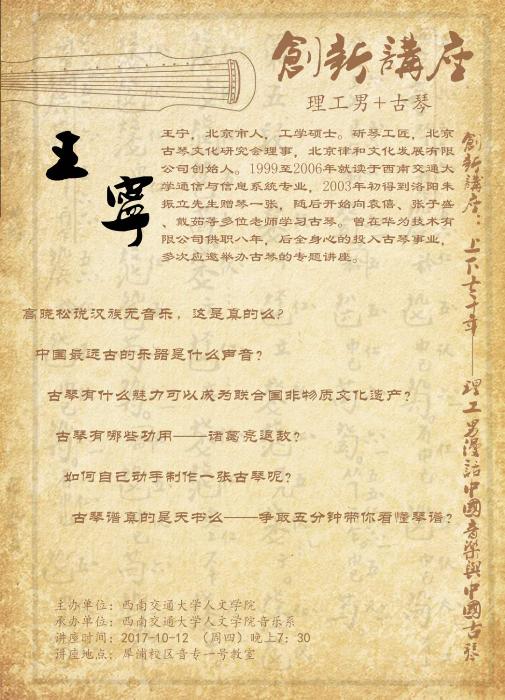 創新講座
理工男+古琴
王寧
王宁，北京市人，工学硕士。斫琴工匠，北京
古琴文化研究会理事，北京律和文化发展有限
公司创始人。1999至2006年就读于西南交通大
学通信与信息系统专业，2003年初得到洛阳朱
振立先生赠琴一张，随后开始向袁信、张子盛
、戴茹等多位老师学习古琴。曾在华为技术有
限公司供职八年，后全身心的投入古琴事业，
多次应邀举办古琴的专题讲座。
創新講座：上下七千年——理工男漫話中國音樂與中國古琴
高晓松说汉族无音乐，这是真的么？
中国最远古的乐器是什么声音？
古琴有什么魅力可以成为联合国非物质文化遗产？
古琴有哪些功用——诸葛亮退敌？
如何自己动手制作一张古琴呢？
古琴谱真的是天书么——争取五分钟带你看懂琴谱？
主办单位：西南交通大学人文学院
承办单位：西南交通大学人文学院音乐系
讲座时间：2017-10-12 （周四）晚上7：30
讲座地点：犀浦校区音专一号教室